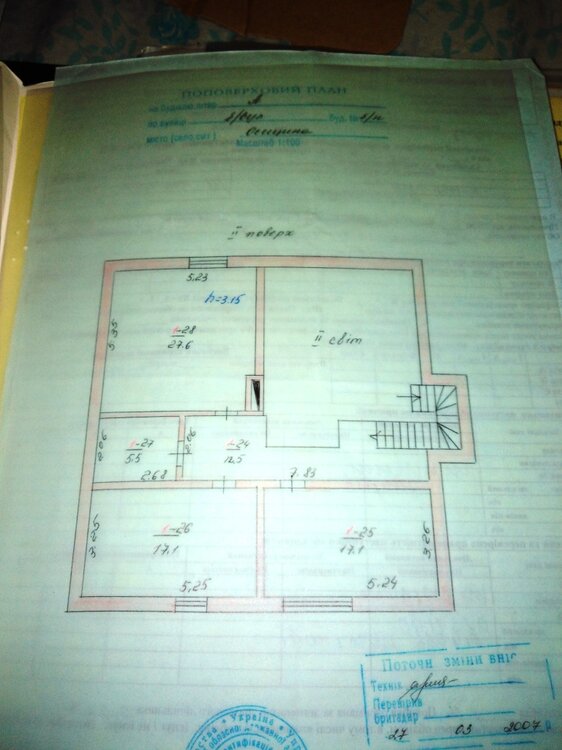 ПОПОВЕРХОВИЙ ПЛАН
на будівлю літер А
по вулиці буд. № б/н
місто (село, смт.)
Масштаб 1:100
ІІ поверх
5,23
h=3.15
1-28
27.6
5,35
ІІ світ
1-27
5.5
2.06
2.68
2.06
1-24
12.5
7.83
1-26
17.1
3,25
5,25
1-25
17.1
3,26
5,24
Поточні зміни вніс
Технік
Перевірив
бригадир
27 03 2007 р
Україна